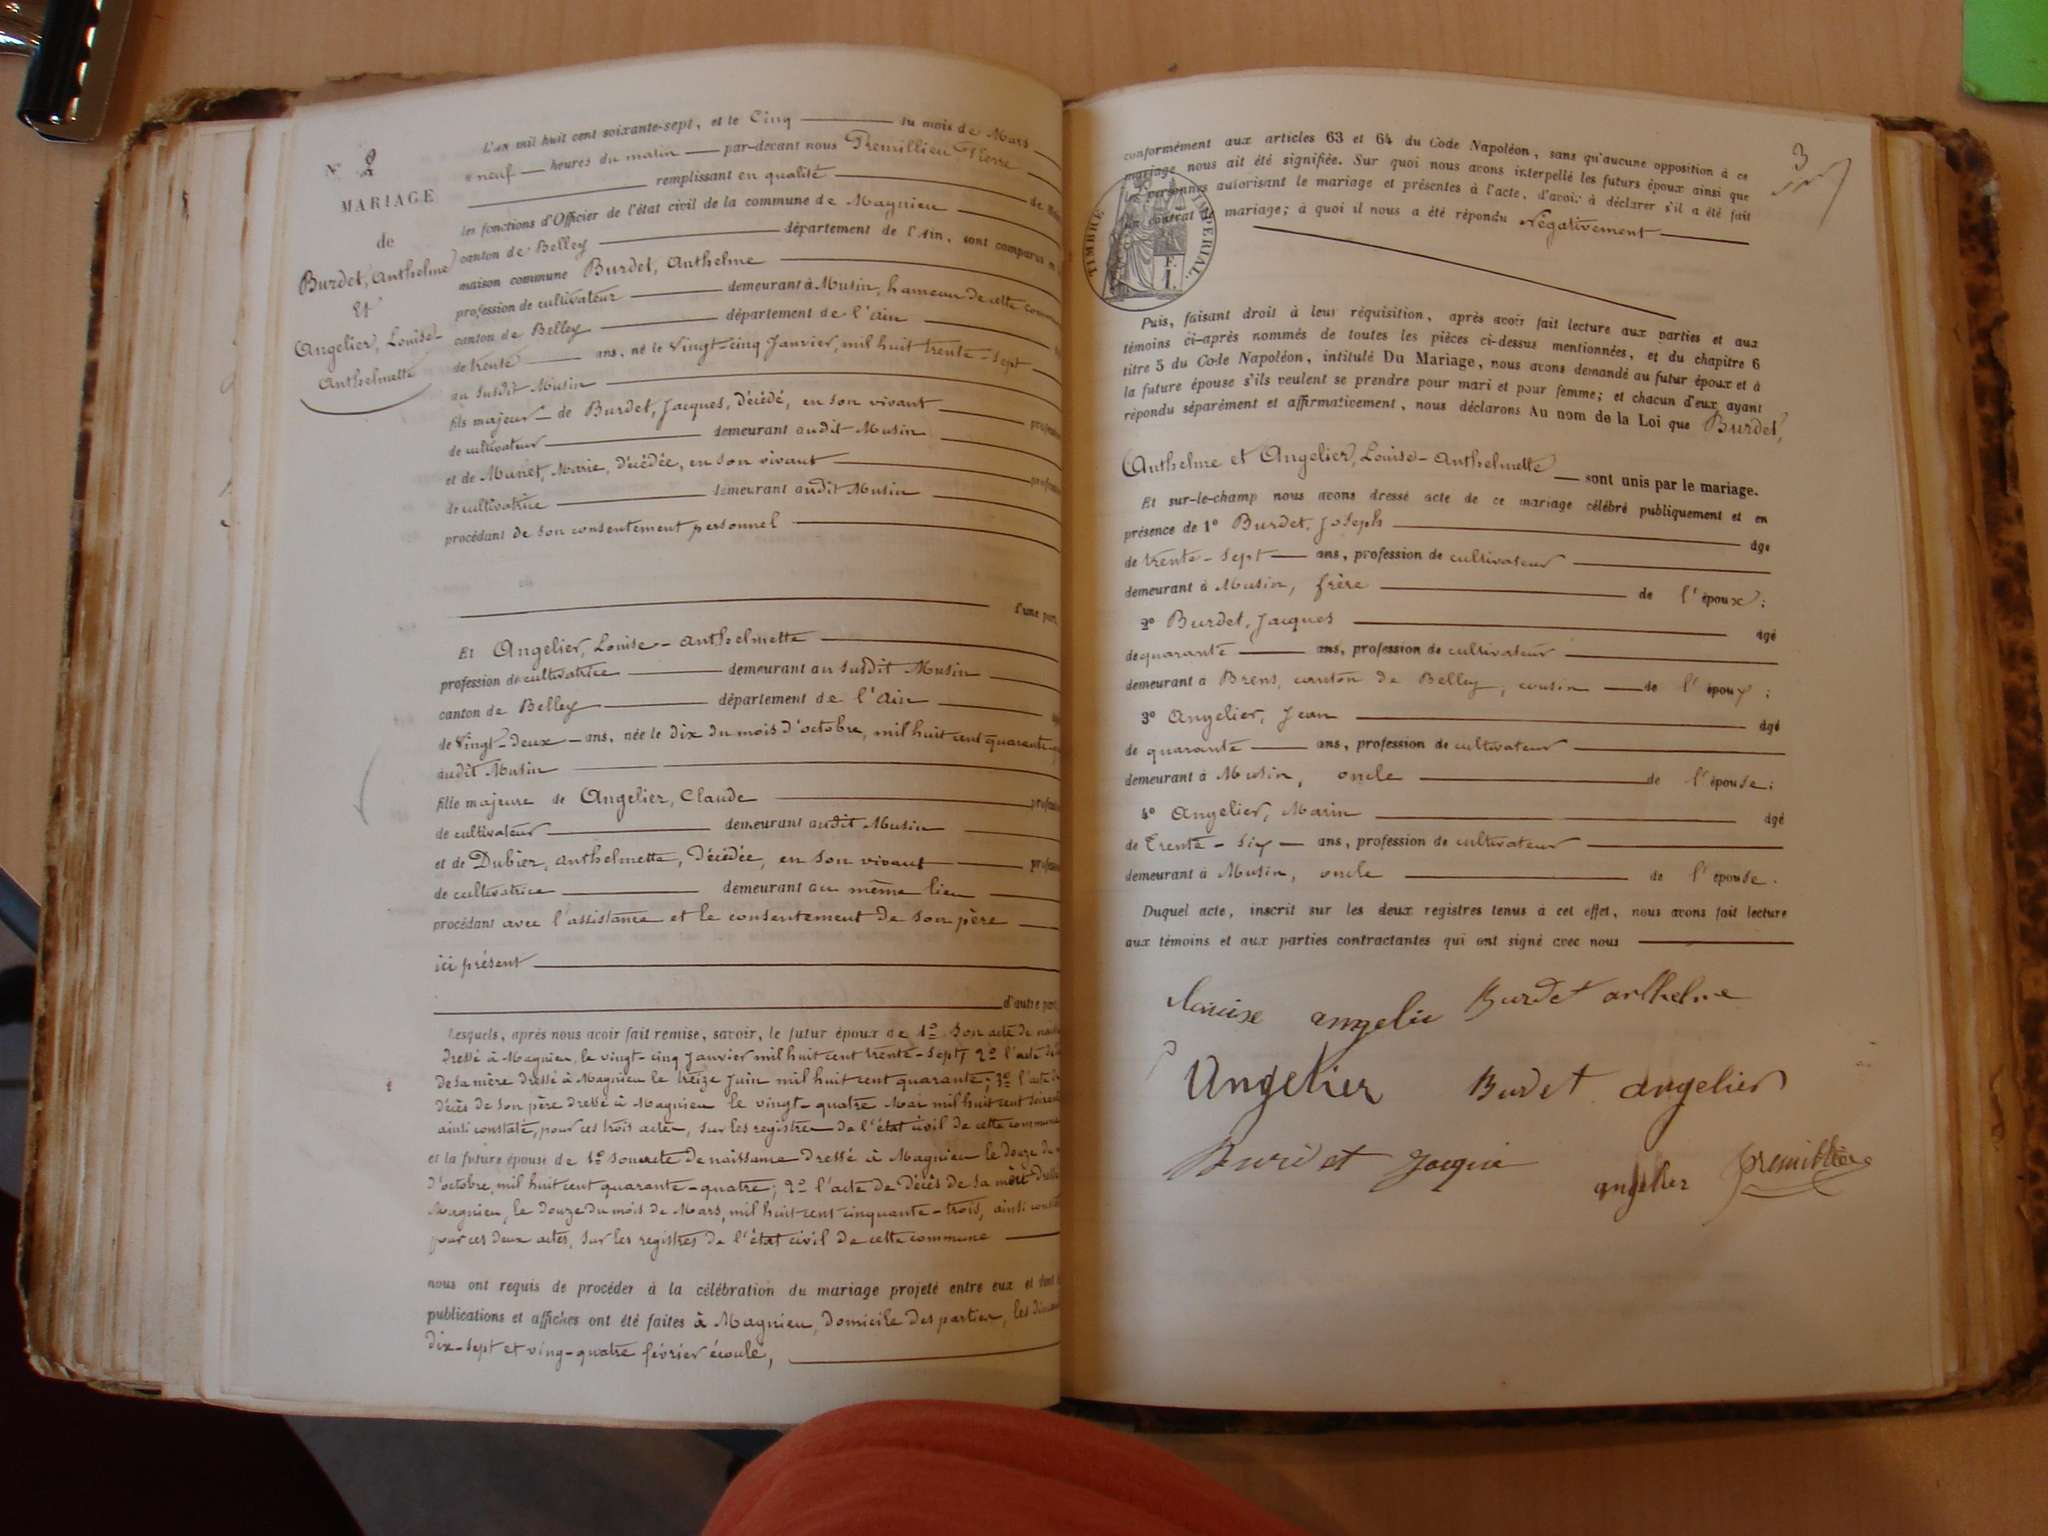 N° 2
MARIAGE
de
Burdet, Anthelme
Et
Angelier, Louise-
Anthelmette
L'an mil huit cent soixante-sept, et le Cinq du mois de Mars
à neuf heures du matin par-devant nous Premillieu Pierre
remplissant en qualité de
les fonctions d'Officier de l'état civil de la commune de Magnieu
canton de Belley département de l'Ain, sont comparus en
maison commune Burdet, Anthelme
profession de cultivateur demeurant à Musin, hameau de cette commune
canton de Belley département de l'Ain
de trente ans, né le vingt-cinq Janvier, mil huit trente-sept
au susdit Musin
fils majeur de Burdet, Jacques, décédé, en son vivant
de cultivateur demeurant audit Musin
et de Munet, Marie, décédée, en son vivant
de cultivatrice demeurant audit Musin
procédant de son consentement personnel
d'une part,
Et Angelier, Louise-Anthelmette
profession de cultivatrice demeurant au susdit Musin
canton de Belley département de l'Ain
de vingt-deux ans, née le dix du mois d'octobre, mil huit cent quarante
audit Musin
fille majeure de Angelier, Claude
de cultivateur demeurant audit Musin
et de Dubier, Anthelmette, décédée, en son vivant
de cultivatrice demeurant au même lieu
procédant avec l'assistance et le consentement de son père
ici présent
d'autre part,
Lesquels, après nous avoir fait remise, savoir, le futur époux de 1° Son acte de
dressé à Magnieu, le vingt-cinq Janvier mil huit cent trente-sept; 2° l'acte de
de sa mère dressé à Magnieu le treize Juin mil huit cent quarante; 3° l'acte de
décès de son père dressé à Magnieu le vingt-quatre Mai mil huit cent
ainsi constaté, pour ces trois actes, sur les registres de l'état civil de cette commune
et la future épouse de 1° son acte de naissance dressé à Magnieu le douze du
d'octobre, mil huit cent quarante-quatre; 2° l'acte de décès de sa mère dressé
Magnieu, le douze du mois de Mars, mil huit cent cinquante-trois, ainsi
pour ces deux actes, sur les registres de l'état civil de cette commune
nous ont requis de procéder à la célébration du mariage projeté entre eux et dont
publications et affiches ont été faites à Magnieu, domicile des parties, les
dix-sept et ving-quatre février écoulé,
3
conformément aux articles 63 et 64 du Code Napoléon, sans qu'aucune opposition à ce
mariage nous ait été signifiée. Sur quoi nous avons interpellé les futurs époux ainsi que
les personnes autorisant le mariage et présentes à l'acte, d'avoir à déclarer s'il a été fait
un contrat de mariage; à quoi il nous a été répondu Négativement
TIMBRE IMPÉRIAL.
Puis, faisant droit à leur réquisition, après avoir fait lecture aux parties et aux
témoins ci-après nommés de toutes les pièces ci-dessus mentionnées, et du chapitre 6
titre 5 du Code Napoléon, intitulé Du Mariage, nous avons demandé au futur époux et à
la future épouse s'ils veulent se prendre pour mari et pour femme; et chacun d'eux ayant
répondu séparément et affirmativement, nous déclarons Au nom de la Loi que Burdet,
Anthelme et Angelier, Louise-Anthelmette sont unis par le mariage.
Et sur-le-champ nous avons dressé acte de ce mariage célébré publiquement et en
présence de 1° Burdet, Joseph âgé
de trente-sept ans, profession de cultivateur
demeurant à Musin, frère de l'époux;
2° Burdet, Jacques âgé
de quarante ans, profession de cultivateur
demeurant à Brens, canton de Belley, cousin de l'époux;
3° Angelier, Jean âgé
de quarante ans, profession de cultivateur
demeurant à Musin, oncle de l'épouse;
4° Angelier, Marin âgé
de Trente-six ans, profession de cultivateur
demeurant à Musin, oncle de l'épouse.
Duquel acte, inscrit sur les deux registres tenus à cet effet, nous avons fait lecture
aux témoins et aux parties contractantes qui ont signé avec nous
louise angelie Burdet anthelme
Angelier Burdet angelier
Burdet Jacque angelier premillieu